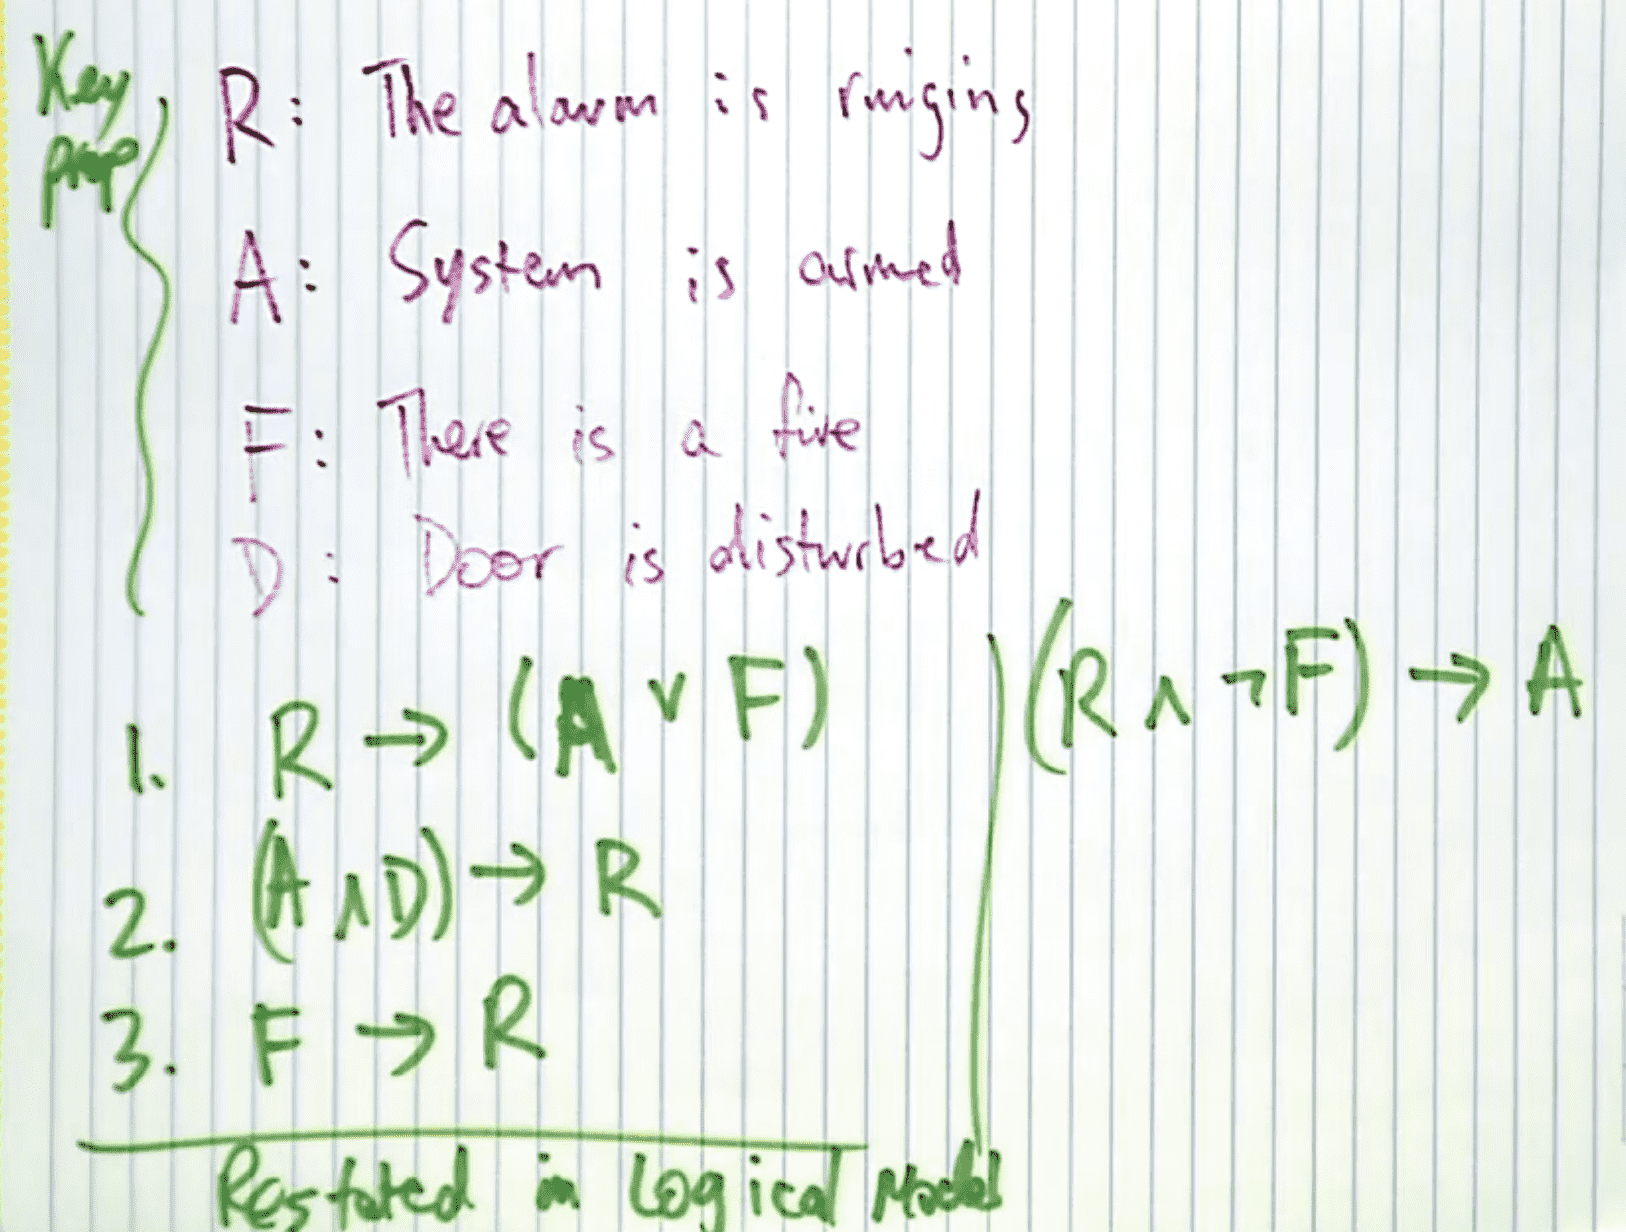 Key
prop
R: The alarm is ringing
A: System is armed
F: There is a fire
D: Door is disturbed
1. R → (A ∨ F)
(R ∧ ¬F) → A
2. (A ∧ D) → R
3. F → R
Restated in Logical Model